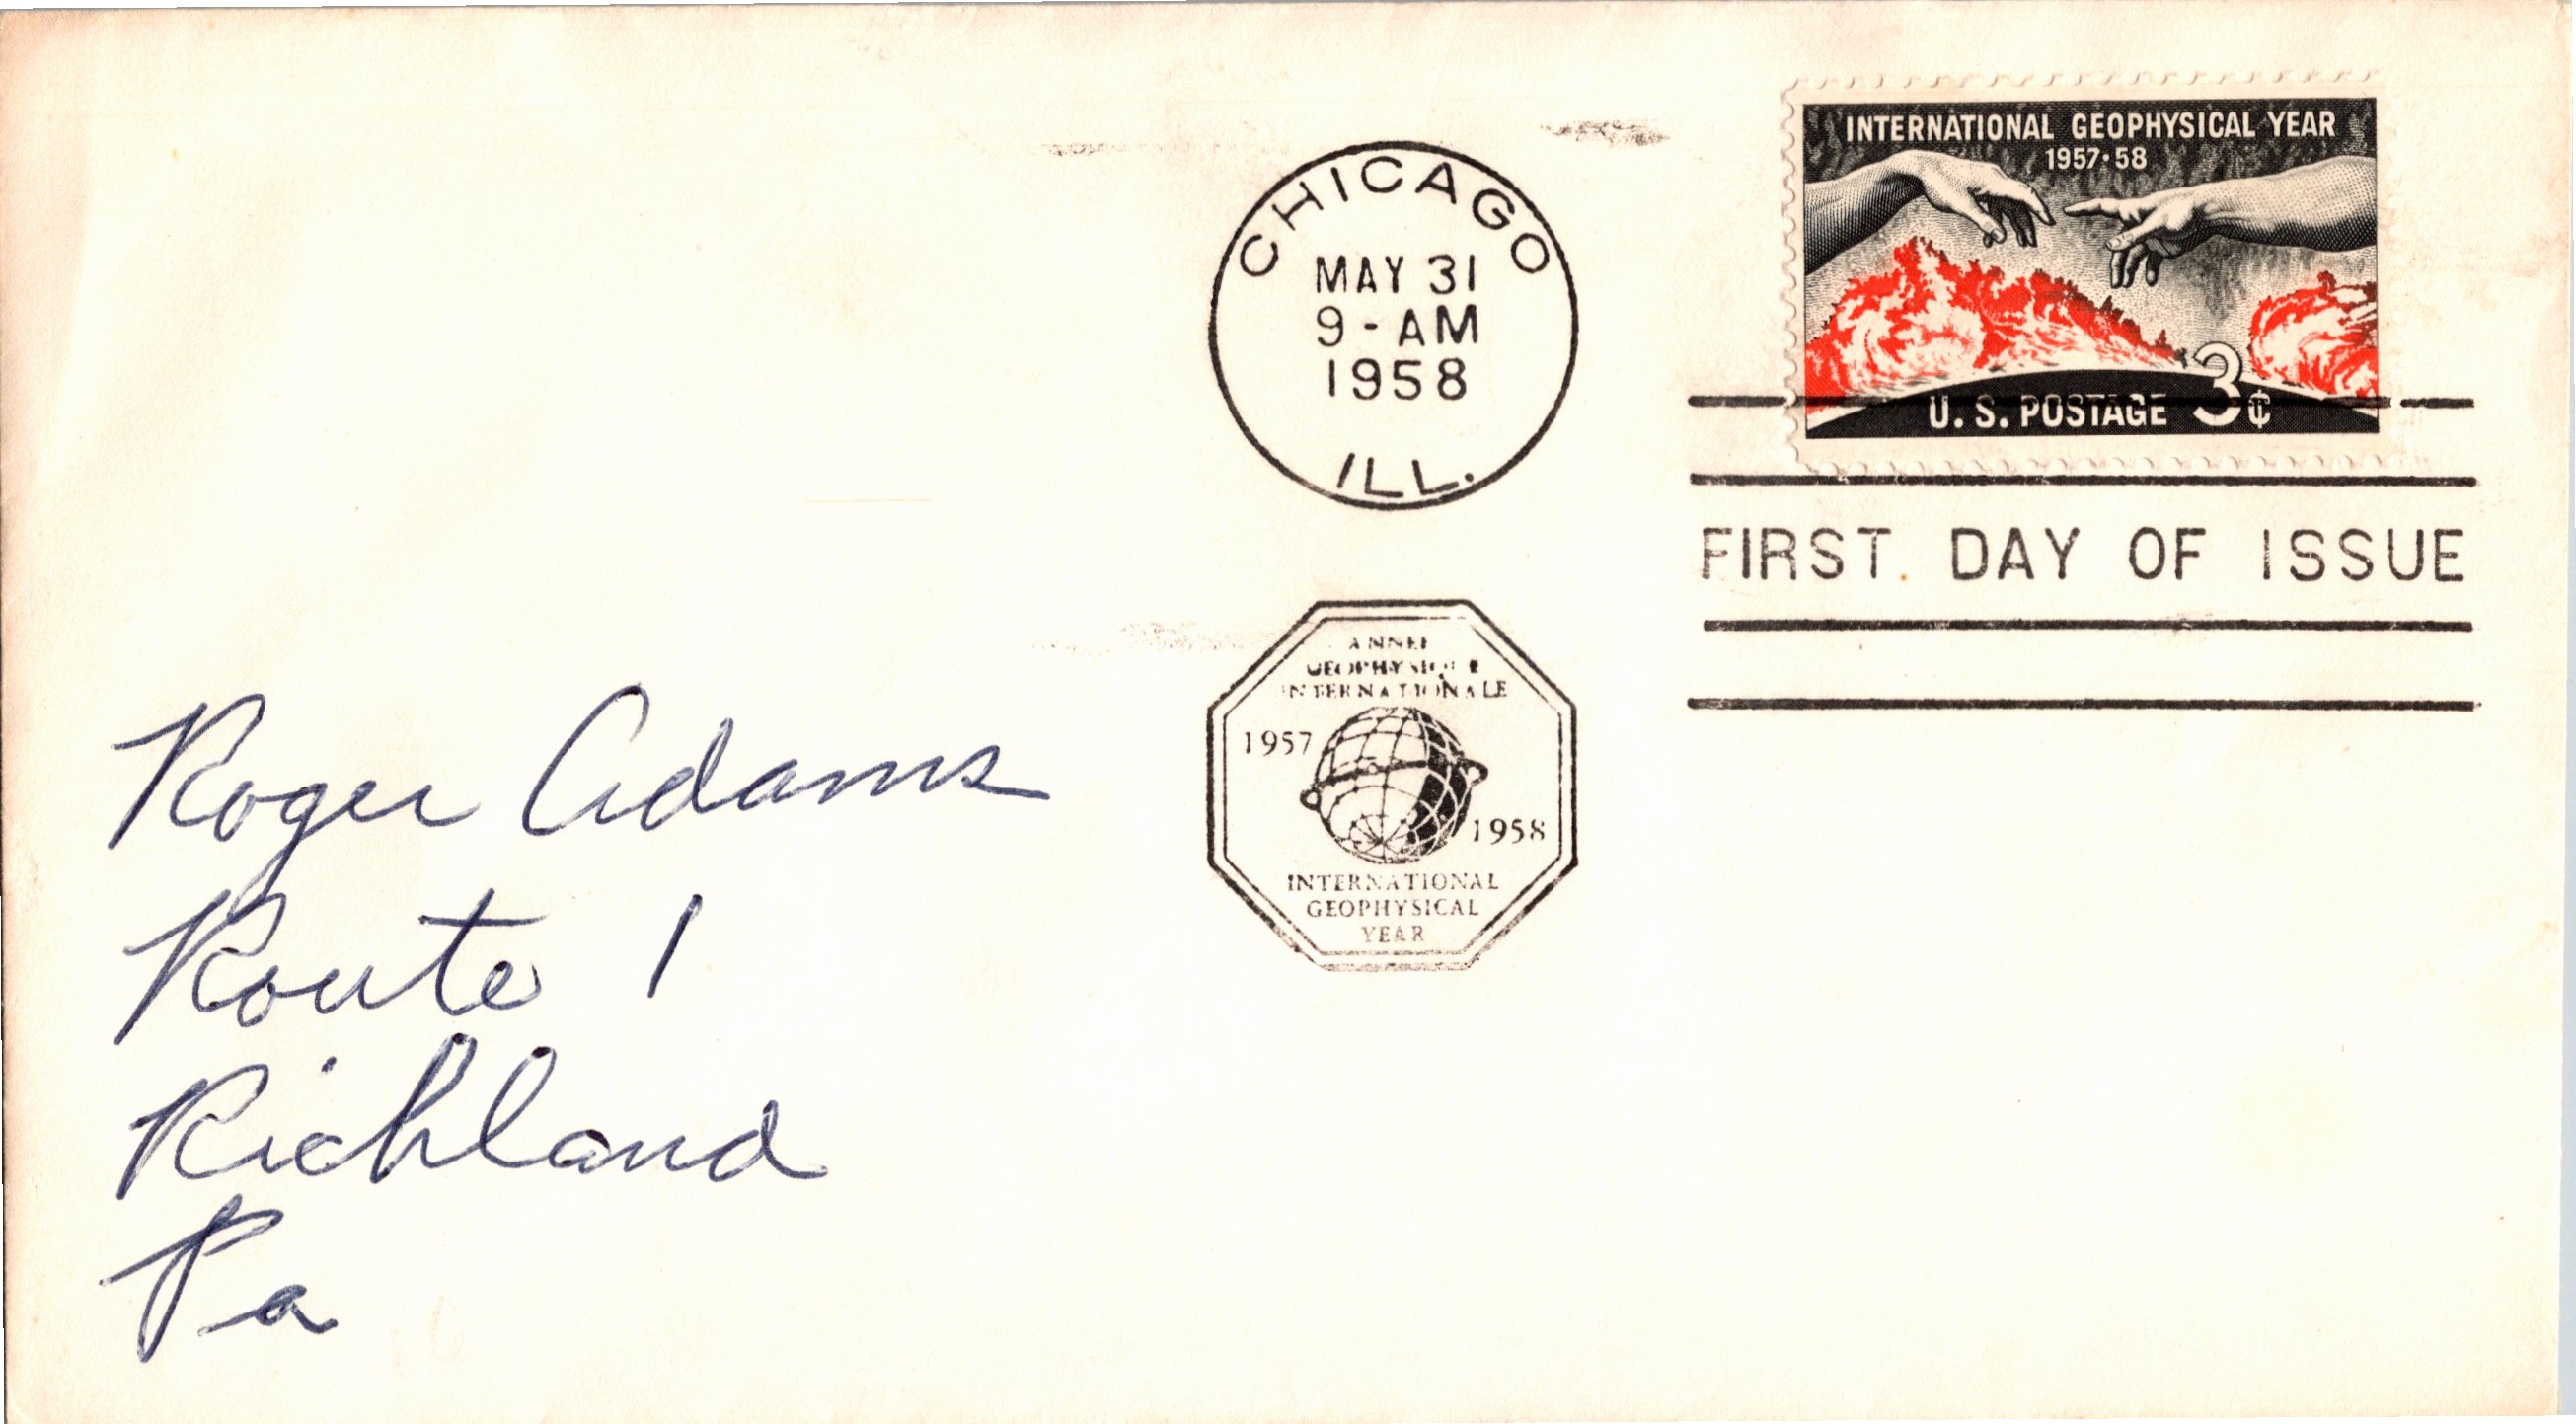 CHICAGO
MAY 31
9-AM
1958
ILL.
INTERNATIONAL GEOPHYSICAL YEAR
1957·58
U. S. POSTAGE 3¢
FIRST DAY OF ISSUE
ANNEE
GEOPHYSIQUE
INTERNATIONALE
1957
1958
INTERNATIONAL
GEOPHYSICAL
YEAR
Roger Adams
Route 1
Richland
Pa